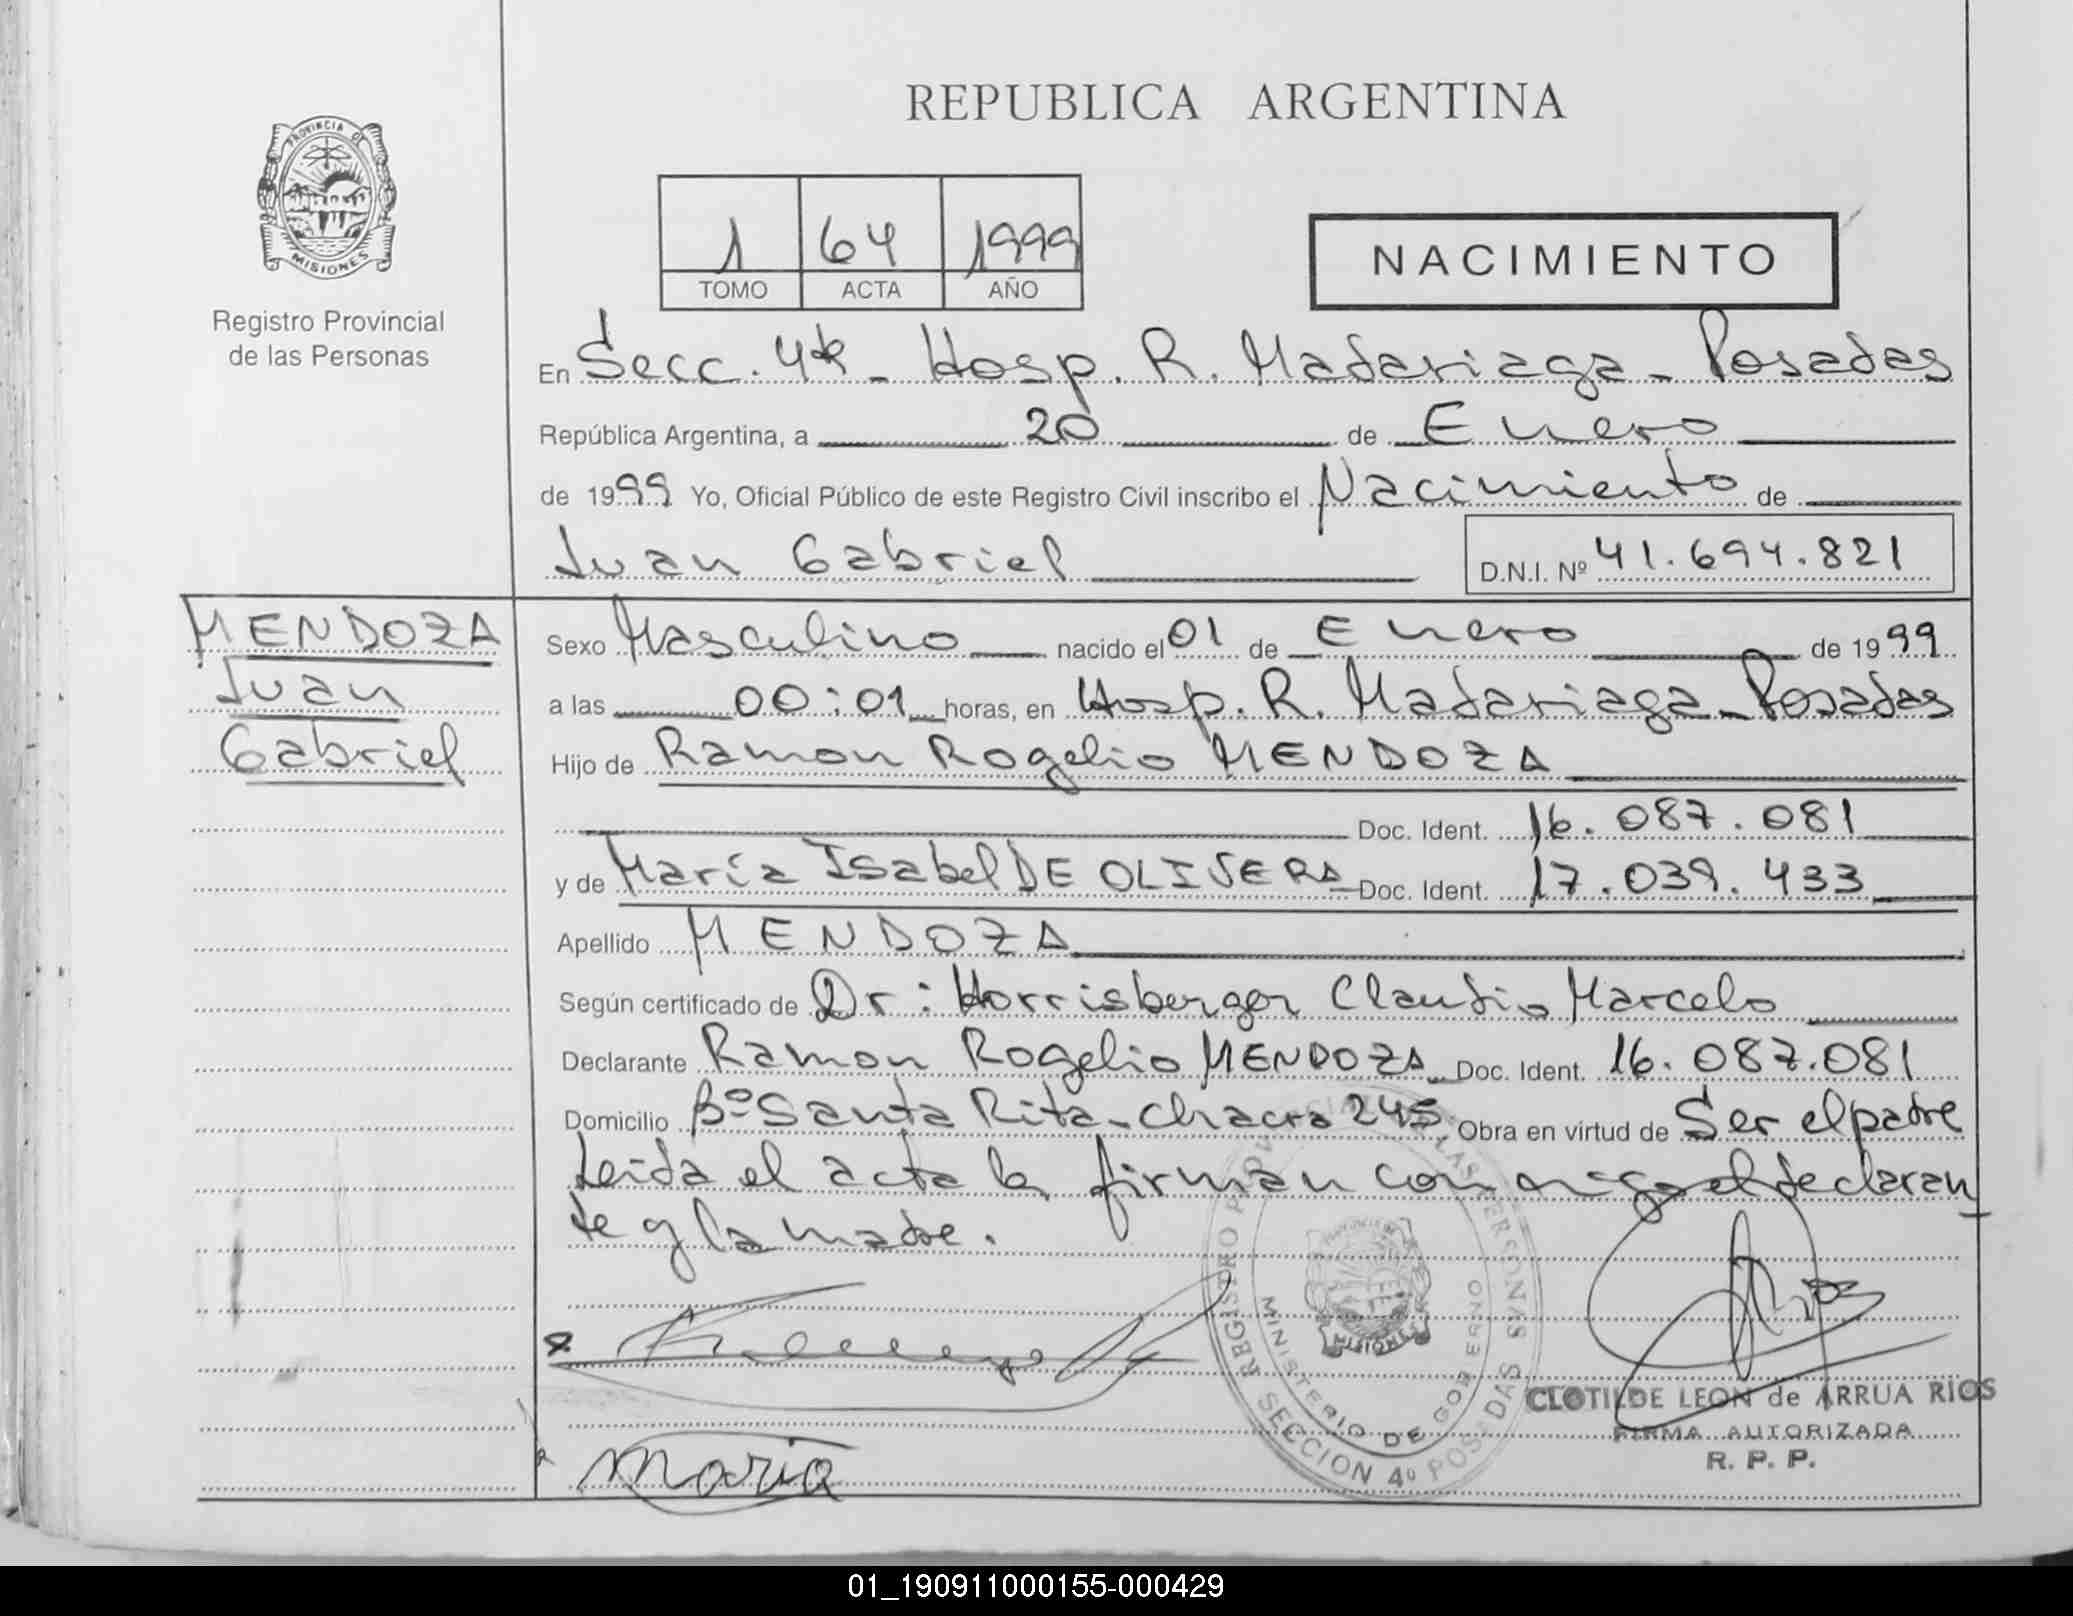 REPUBLICA ARGENTINA
PROVINCIA DE
MISIONES
Registro Provincial
de las Personas
1 64 1999
TOMO ACTA AÑO
NACIMIENTO
En Secc. 4ta - Hosp. R. Madariaga - Posadas
República Argentina, a 20 de Enero
de 1999 Yo, Oficial Público de este Registro Civil inscribo el Nacimiento de
Juan Gabriel D.N.I. Nº 41.694.821
MENDOZA
Juan
Gabriel
Sexo Masculino nacido el 01 de Enero de 1999
a las 00:01 horas, en Hosp. R. Madariaga - Posadas
Hijo de Ramon Rogelio MENDOZA
Doc. Ident. 16.087.081
y de María Isabel DE OLIVERA Doc. Ident. 17.039.433
Apellido MENDOZA
Según certificado de Dr: Horrisberger Claudio Marcelo
Declarante Ramon Rogelio MENDOZA Doc. Ident. 16.087.081
Domicilio Bº Santa Rita - Chacra 245 Obra en virtud de Ser el padre
Leida el acta la firman conmigo el declaran
te y la madre.
REGISTRO PROVINCIAL DE LAS PERSONAS
MINISTERIO DE GOBIERNO
SECCION 4º POSADAS
MISIONES
CLOTILDE LEON de ARRUA RIOS
FIRMA AUTORIZADA
R. P. P.
Maria
01_190911000155-000429